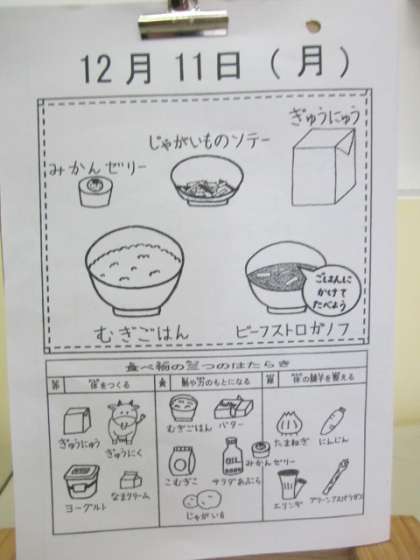 12月11日（月）
ぎゅうにゅう
じゃがいものソテー
みかんゼリー
むぎごはん
ビーフストロガノフ
ごはんに
かけて
たべよう
食べ物の三つのはたらき
赤 体をつくる
黄 熱や力のもとになる
緑 体の調子を整える
ぎゅうにゅう
ぎゅうにく
ヨーグルト
なまクリーム
むぎごはん
バター
こむぎこ
サラダあぶら
みかんゼリー
じゃがいも
OIL
たまねぎ
にんじん
エリンギ
グリーンアスパラガス